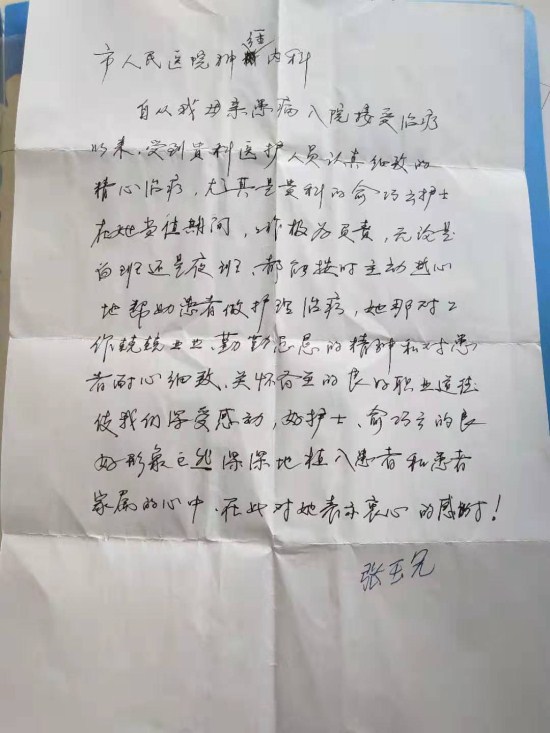 市人民医院神经内科
自从我母亲患病入院接受治疗
以来，受到贵科医护人员认真细致的
精心治疗，尤其是贵科的俞巧云护士
在她当值期间，工作极为负责，无论是
白班还是夜班，都能按时主动热心
地帮助患者做护理治疗，她那对工
作兢兢业业、勤勤恳恳的精神和对患
者耐心细致、关怀备至的良好职业道德
使我们深受感动，好护士、俞巧云的良
好形象已然深深地植入患者和患者
家属的心中，在此对她表示衷心的感谢！
张玉兄